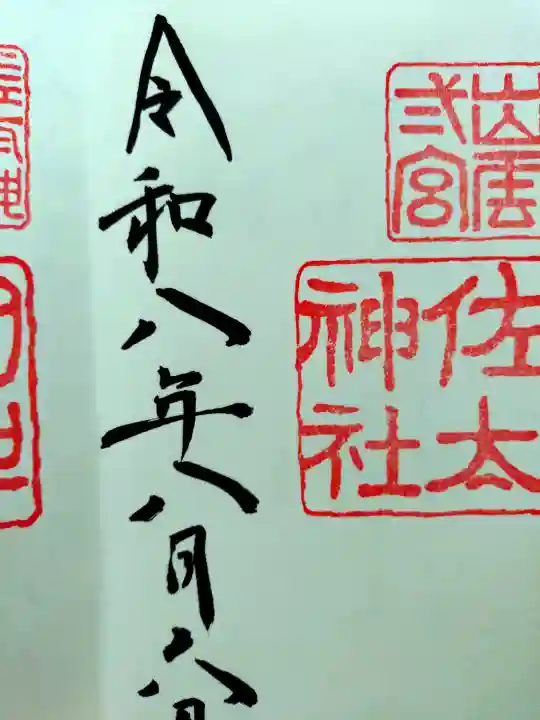 出雲
弐宮
佐太
神社
令和八年八月六日